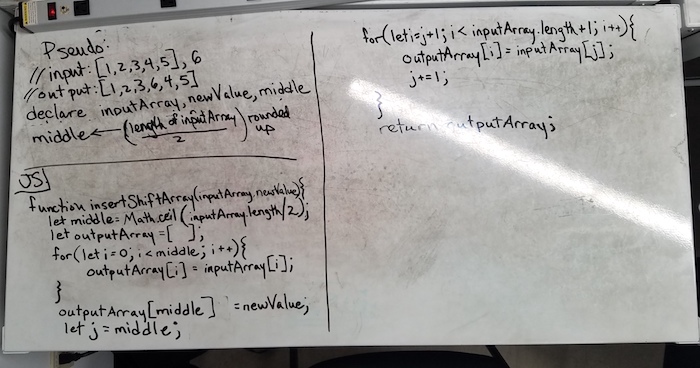 Pseudo:
// input: [1,2,3,4,5], 6
// output: [1,2,3,6,4,5]
declare inputArray, newValue, middle
middle ← (length of inputArray / 2) rounded up
JS
function insertShiftArray(inputArray, newValue){
let middle = Math.ceil(inputArray.length/2);
let outputArray = [ ];
for(let i=0; i<middle; i++){
outputArray[i] = inputArray[i];
}
outputArray[middle] = newValue;
let j = middle;
for(let i=j+1; i< inputArray.length+1; i++){
outputArray[i] = inputArray[j];
j+=1;
}
return outputArray;